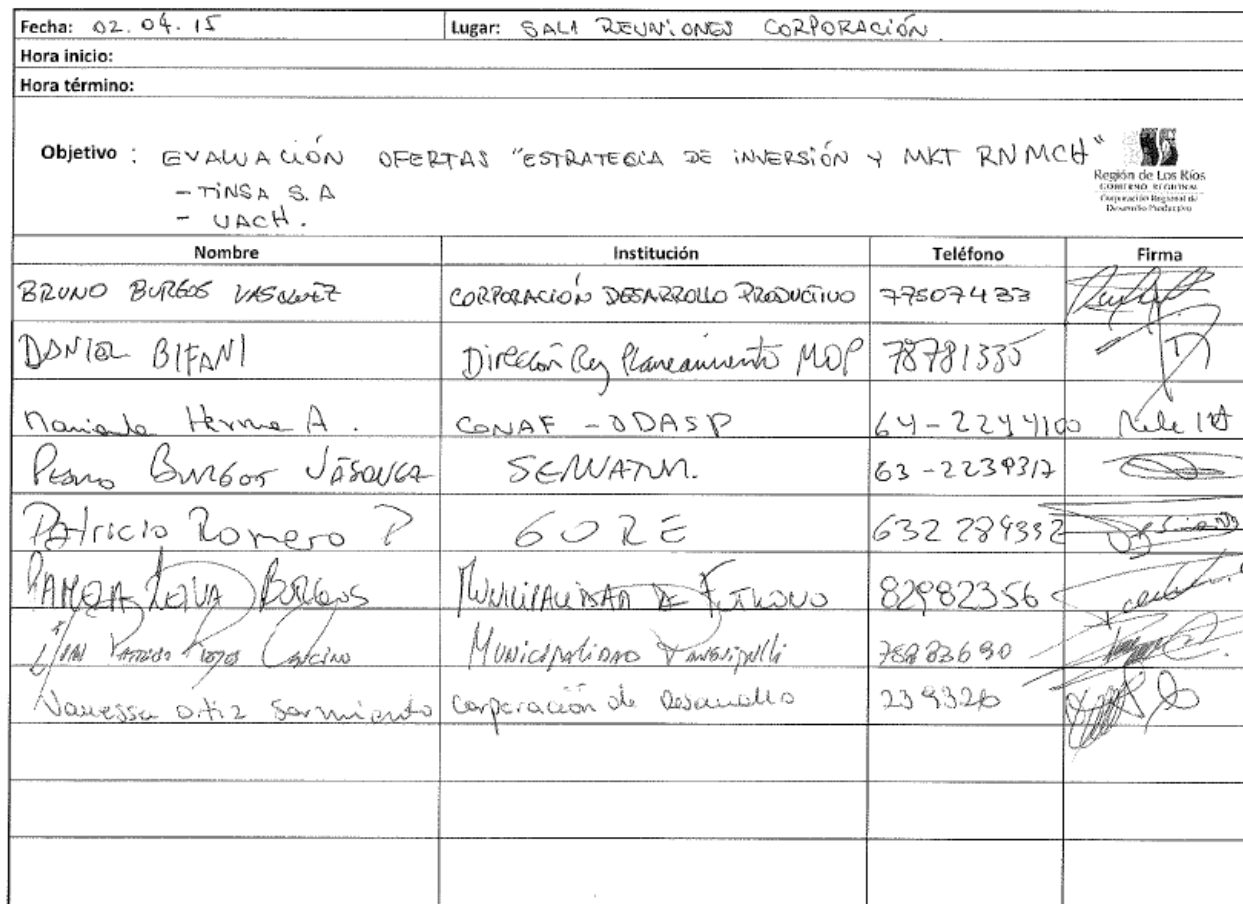 Fecha: 02.04.15 Lugar: SALA REUNIONES CORPORACIÓN.
Hora inicio:
Hora término:
Objetivo : EVALUACIÓN OFERTAS "ESTRATEGIA DE INVERSIÓN Y MKT RNMCH"
- TINSA S.A
- UACH.
Región de Los Ríos
GOBIERNO REGIONAL
Corporación Regional de
Desarrollo Productivo
Nombre Institución Teléfono Firma
BRUNO BURGOS VASQUEZ CORPORACIÓN DESARROLLO PRODUCTIVO 77507433
DANIEL BIFANI Dirección Reg Planeamiento MOP 78781335
A. CONAF - 64-2244100
Pedro BURGOS VÁSQUEZ SERNATUR. 63-2239317
Patricio Romero P GORE 632 284332
PAMELA LEIVA BURGOS MUNICIPALIDAD DE FUTRONO 82982356
Municipalidad Panguipulli
Vanessa Ortiz Sarmiento Corporación de Desarrollo 239326